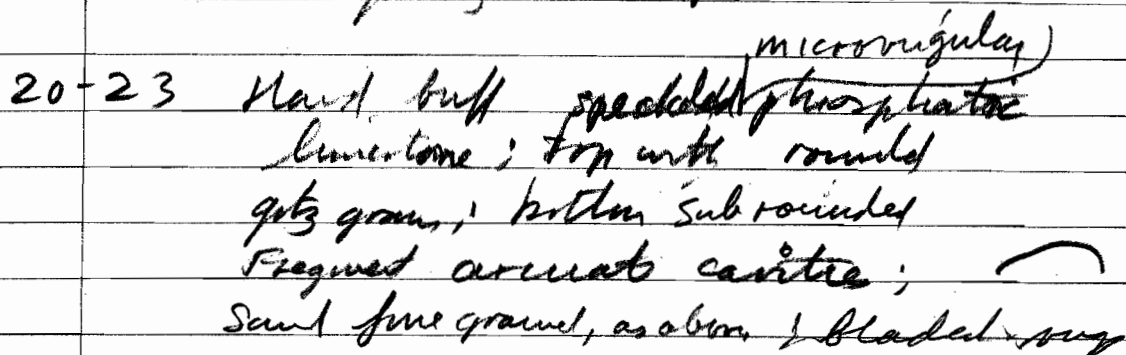 microvugular
20-23 Hard buff speckled phosphatic
limestone; top with rounded
qtz grains; bottom subrounded
Frequent arcuate cavities;
Sand fine grained, as above; bladed